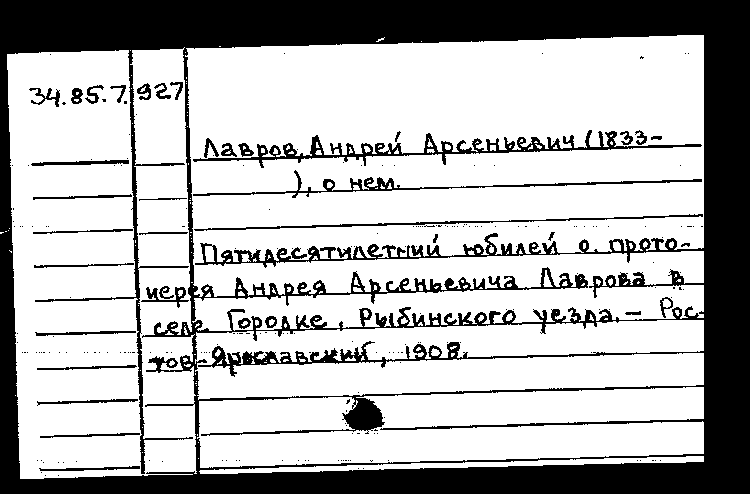 34.85.7. 927
Лавров, Андрей Арсеньевич (1833-
), о нем.
Пятидесятилетний юбилей о. прото-
иерея Андрея Арсеньевича Лаврова в
селе Городке, Рыбинского уезда. - Рос-
тов-Ярославский, 1908.